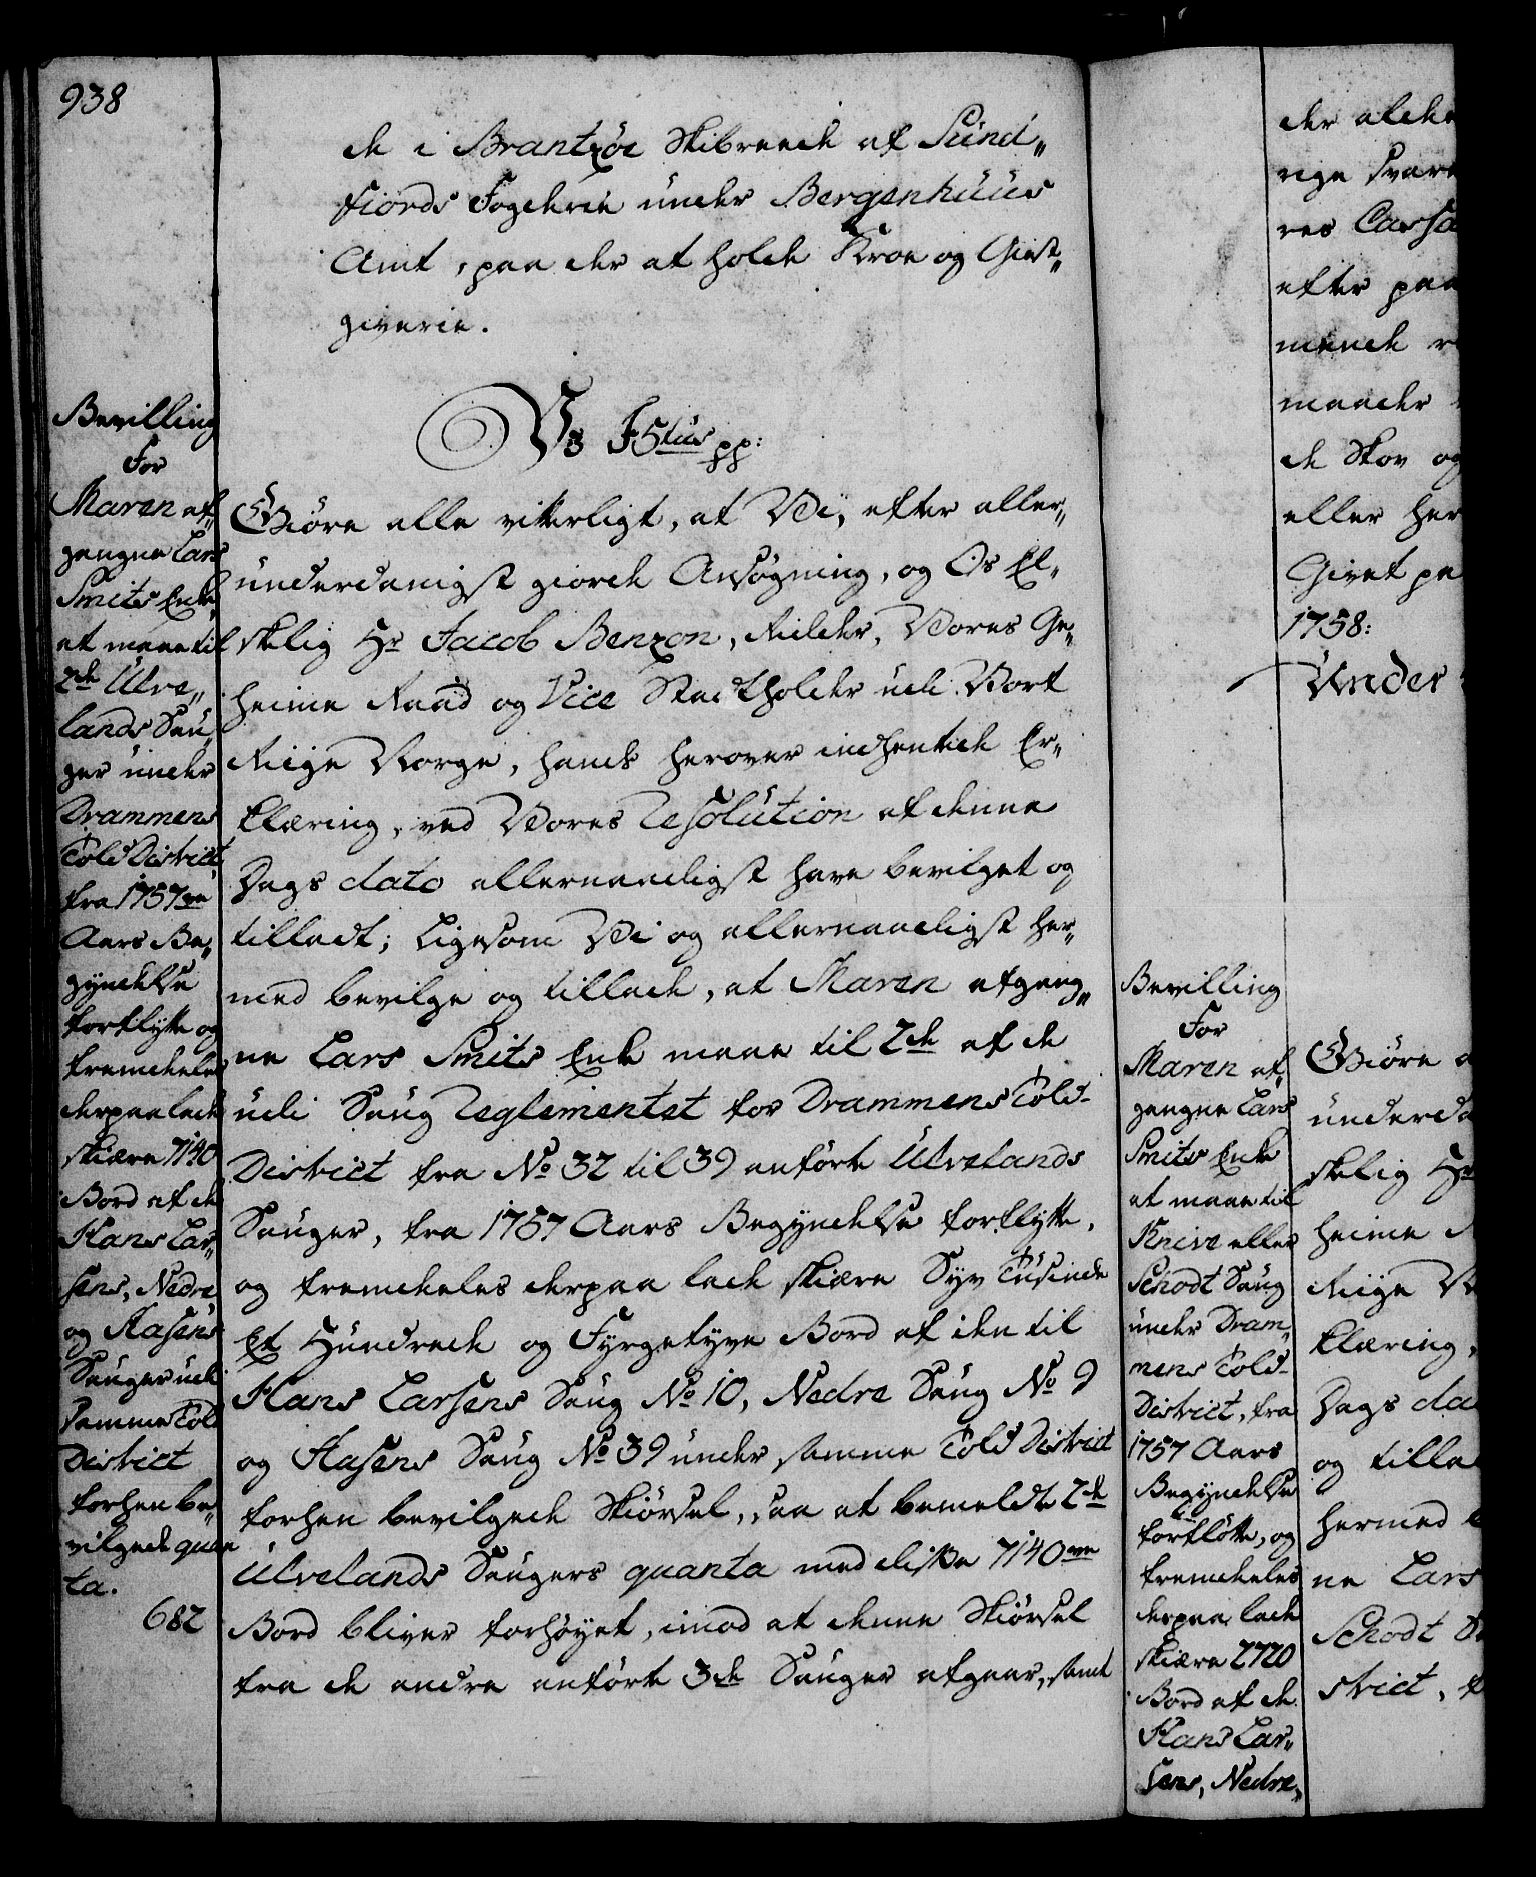 938
de i Brantzöe Skibreede af Sünd„
fiords Fogderie under Bergenhuus
Amt, paa der at holde Kroe og Giest„
giverie.
Bevilling
For
Maren af„
gangne Lars
Smits Enke,
at maae til
2de Ulve„
lands Sau„
ger under
Drammens
Told District,
fra 1757ve
Aars Be„
gyndelse
fortflytte og
fremdeles
derpaa lade
skiære 7140
Bord af de
Hans Lar„
sens, Nedre
og Aasens
Sauger udi
samme Told
District
forhen be„
vilgede quan
ta.
682
Vs F5tus pp:
Giøre alle vitterligt, at Vi, efter aller„
underdanigst giorde Ansøgning, og Os El„
skelig Hr Jacob Benzon, Ridder, Vores Ge„
heime Raad og Vice Stadtholder udi Vort
Riige Norge, hands herover indhentede Er„
klæring, ved Vores Resolution af denne
Dags dato allernaadigst have bevilget og
tilladt; Ligesom Vi og allernaadigst her„
med bevilge og tillade, at Maren afgang„
ne Lars Smits Enke maae til 2de af de
udi Saug Reglementet for Drammens Told-
District fra No 32 til 39 anførte Ulvelands
Sauger, fra 1757 Aars Begyndelse fortflytte,
og fremdeles derpaa lade skiære Syv Tusinde
Et Hundrede og Fyrgetyve Bord af den til
Hans Larsens Saug No 10, Nedre Saug No 9
og Aasens Saug No 39 under samme Told District
forhen bevilgede Skiørsel, saa at bemeldte 2de
Ulvelands Saugers quanta med disse 7140ve
Bord bliver forhøyet, imod at denne Skiørsel
fra de andre anførte 3de Sauger afgaar, samt
Bevilling
For
Maren af„
gangne Lars
Smits Enke
at maae til
Knive eller
Schodt Saug
under Dram„
mens Told-
District, fra
1757 Aars
Begyndelse
fortflötte, og
fremdeles
derpaa lade
skiære 2720
Bord af de
Hans Lar„
sens, Nedre„
der alde
rige svar
res Cassa
efter paa
mende
maader
de Skov og
eller her
Givet pa
1758:
Under
Giøre a
underda
skelig Hr
heime R
Riige N
klæring,
Dags da
og tilla
hermed b
ne Lars
Schodt
strict, f